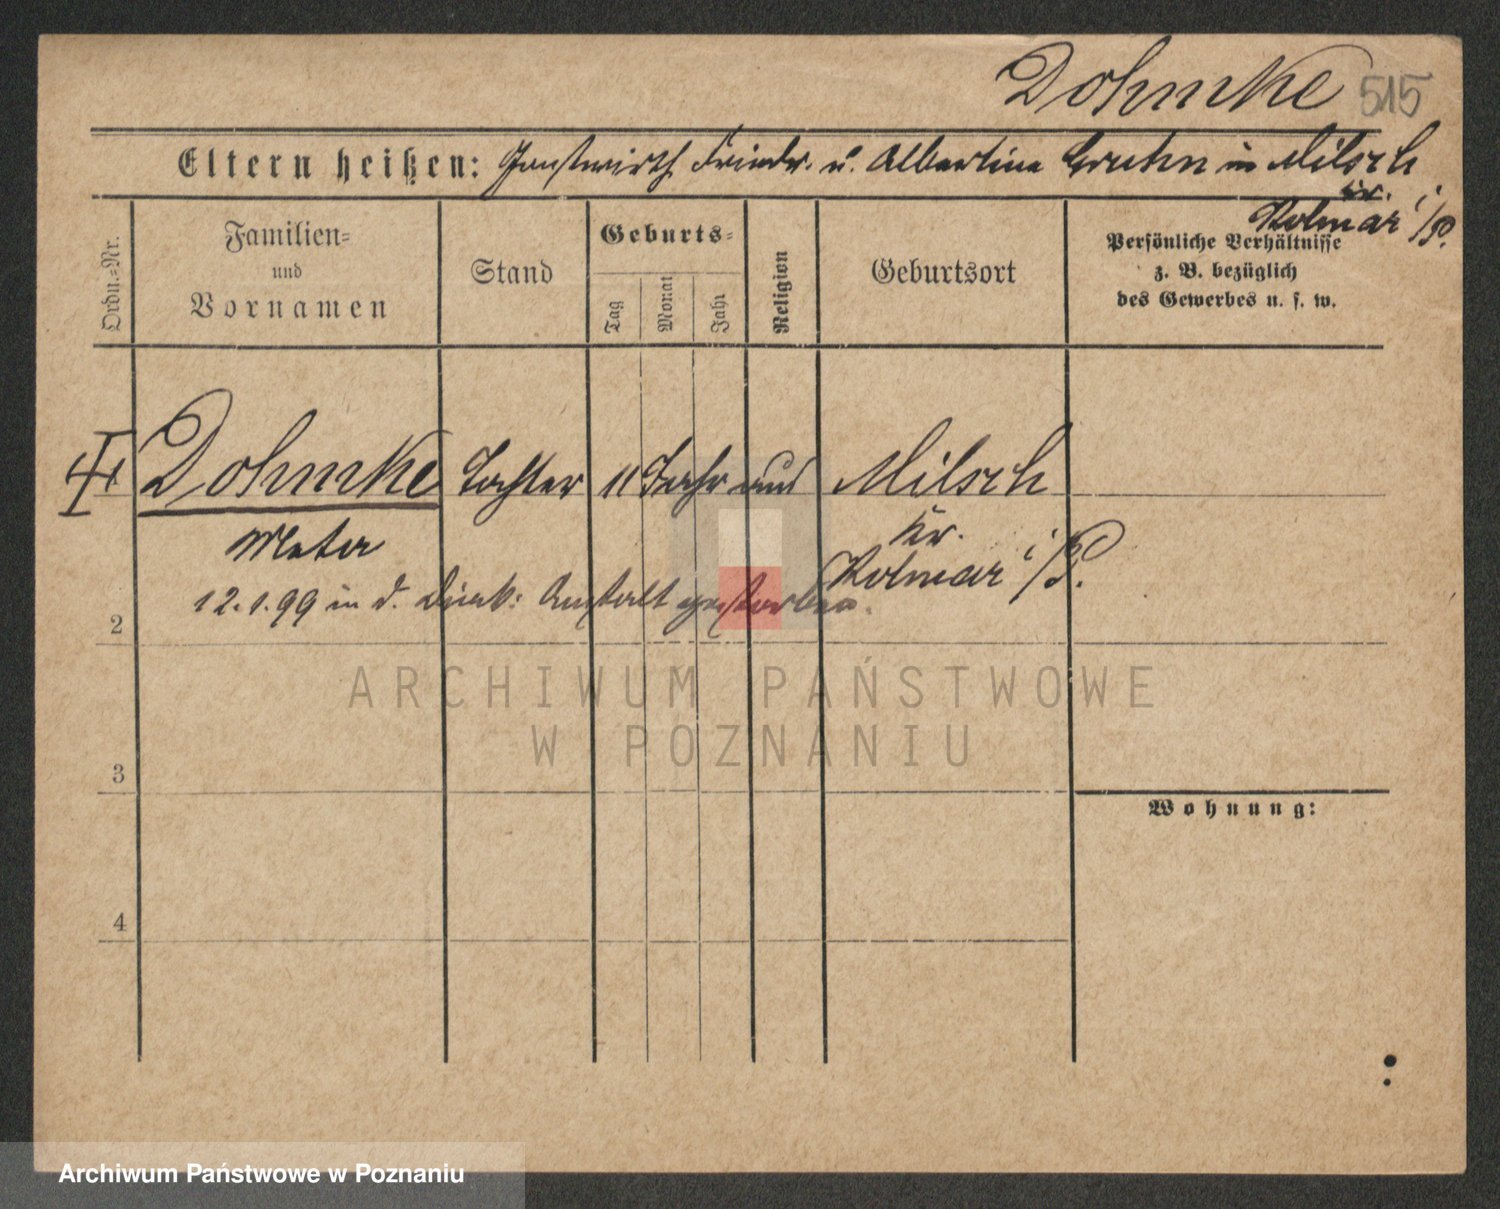 Dohmke 515
Eltern heißen: Gastwirth Friedr. u. Albertine Gruhn in Milsch
Kr.
Kolmar i/P.
Ordn.=Nr.
Familien=
und
Vornamen
Stand
Geburts=
Tag
Monat
Jahr
Religion
Geburtsort
Persönliche Verhältnisse
z. B. bezüglich
des Gewerbes u. s. w.
Dohmke Tochter 11 Jahr Milsch
Meta Kr.
Kolmar i/P.
12.1.99 in d. Diak: Anstalt gestorben.
2
3
4
Wohnung:
ARCHIWUM PAŃSTWOWE
W POZNANIU
Archiwum Państwowe w Poznaniu